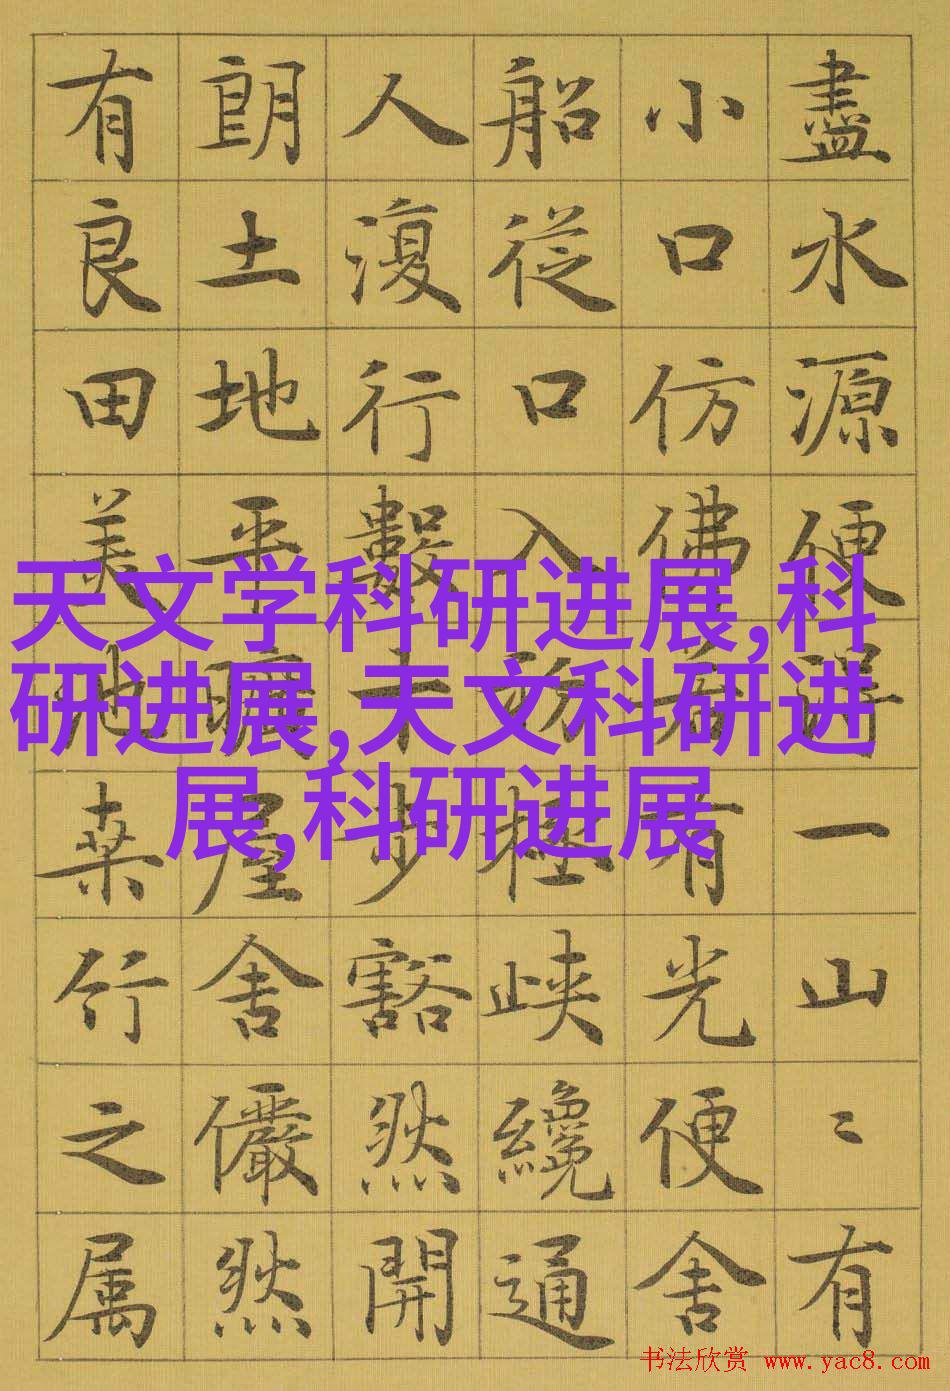 盡水源便得一山〻有
小口仿佛若有光便舍
船從口入初極峽纔通
人復行數十步豁然開
朗土地平曠屋舍儼然
有良田美池桒竹之属
天文学科研进展,科
研进展,天文科研进
展,科研进展
书法欣赏 www.yac8.com